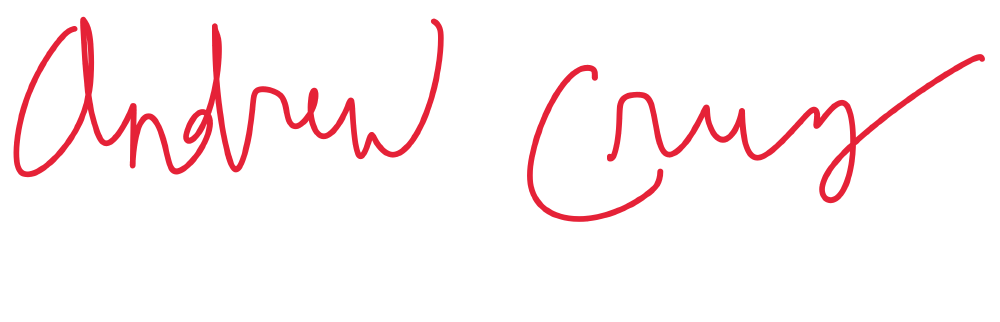 Andrew Cruz